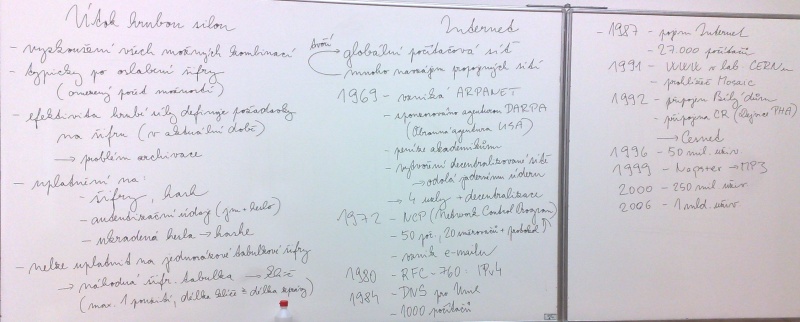 Útok hrubou silou
- vyzkoušení všech možných kombinací
- typicky po oslabení šifry
(omezený počet možností)
- efektivita hrubé síly definuje požadavky
na šifru (v aktuální době)
→ problém archivace
- uplatnění na:
- šifry, hash
- autentizační údaje (jm + heslo)
- ukradená hesla → hashe
- nelze uplatnit na jednorázové tabulkové šifry
→ náhodná šifr. tabulka →
(max. 1 použití, délka klíče = délka zprávy)
Internet
tvoří
globální počítačová síť
mnoho navzájem propojených sítí
1969 - vzniká ARPANET
- sponzorováno agenturou DARPA
(Obranná agentura USA)
- peníze akademikům
- vytvoření decentralizované sítě
→ odolá jadernému úderu
→ 4 uzly + decentralizace
1972 - NCP (Network Control Program)
- 50 poč., 20 směrovačů + protokol
- vznik e-mailu
1980 - RFC - 760: IPv4
1984 - DNS pro
- 1000 počítačů
- 1987 - pojem Internet
- 27.000 počítačů
1991 - WWW v lab. CERN
- prohlížeč Mosaic
1992 - připojen Bílý dům
- připojena ČR (Dejvice PHA)
→ Cesnet
1996 - 50 mil. uživ.
1999 - Napster → MP3
2000 - 250 mil. uživ
2006 - 1 mld. uživ